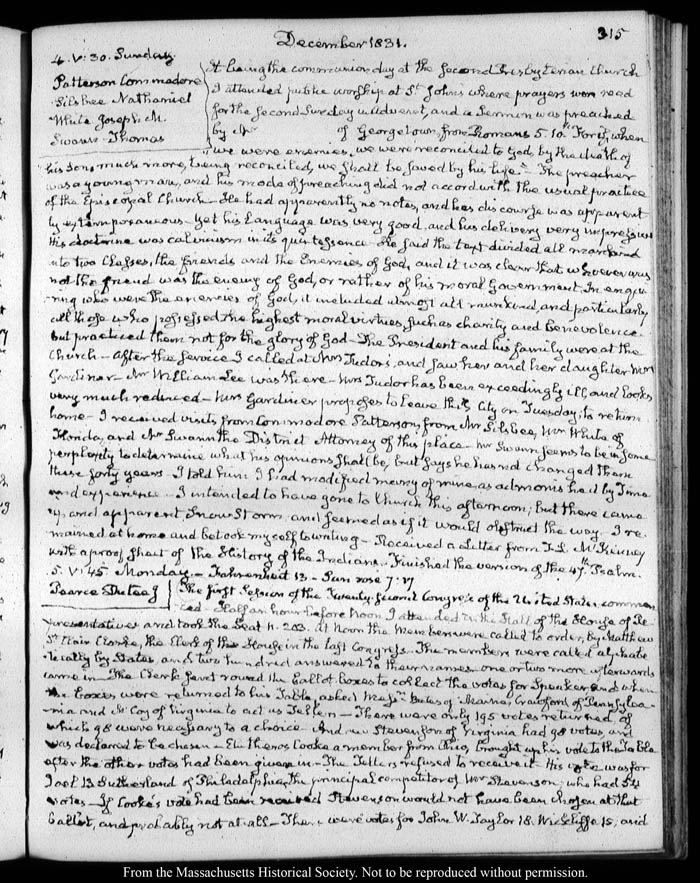 315
December 1831.
4. V: 30. Sunday.
Patterson Commodore
Silsbee Nathaniel
White Joseph M.
Swann Thomas
It being the communion day at the Second Presbyterian Church
I attended public worship at St. John's where prayers were read
for the Second Sunday in Advent, and a Sermon was preached
by Mr of Georgetown, from Romans 5. 10. "For if, when
we were enemies, we were reconciled to God, by the death of
his Son, much more, being reconciled, we shall be saved by his life." The preacher
was a young man, and his mode of preaching did not accord with the usual practice
of the Episcopal Church. He had apparently no notes, and his discourse was apparent
ly extemporaneous. Yet his Language was very good, and his delivery very impressive
His doctrine was calvinism in its quintessence. He said the text divided all mankind
into two Classes, the friends and the Enemies of God, and it was clear that whoever was
not the friend was the enemy of God, or rather of his moral Government. In enqui
ring who were the enemies of God, it included almost all mankind, and particularly
all those who possessed the highest moral virtues, such as charity and benevolence
but practiced them not for the glory of God - The President and his family were at the
Church - After the service I called at Mrs Tudor's, and saw her and her daughter Mrs
Gardiner - Mr William Lee was there - Mrs Tudor has been exceedingly ill, and looks
very much reduced - Mrs Gardiner proposes to leave this City on Tuesday, to return
home - I received visits from Commodore Patterson, from Mr Silsbee, Mr White of
Florida, and Mr Swann the District Attorney of this place - Mr Swann seems to be in some
perplexity to determine what his opinions shall be, but says he has not changed them
these forty years - I told him I had modified many of mine as admonished by Time
and experience - I intended to have gone to Church this afternoon; but there came
up, an apparent Snow Storm, and seemed as if it would obstruct the way - I re
mained at home and betook myself to writing - Received a Letter from T. L. McKenney
with a proof sheet of the History of the Indians. Finished the version of the 47th Psalm.
5. V: 45. Monday - Fahrenheit 13 - Sun rose 7:17
Pearce Dutee J
The first Session of the Twenty-second Congress of the United States commen
ced - Half an hour before Noon I attended in the Hall of the House of Re
presentatives and took the Seat N. 203. At Noon the Members were called to order, by Matthew
St Clair Clarke, the Clerk of the House in the last Congress. The members were called alphabe
tically by States, and two hundred answered to their names - one or two more afterwards
came in - The Clerk sent round the ballot boxes to collect the votes for Speaker and when
the boxes were returned to his Table, asked Messrs Bates of Maine, Crawford of Pennsylva-
nia and McCoy of Virginia to act as Tellers - There were only 195 votes returned, of
which 98 were necessary to a choice - Andrew Stevenson of Virginia had 98 votes, and
was declared to be chosen - Eleutheros Cooke a member from Ohio, brought up his vote to the Table
after the other votes had been given in - The Tellers refused to receive it. His vote was for
Joel B Sutherland of Philadelphia, the principal competitor of Mr Stevenson, who had 54
votes - If Cooke's vote had been received Stevenson would not have been chosen at that
ballot, and probably not at all - There were votes for John W. Taylor 18. Wickliffe 15, and
From the Massachusetts Historical Society. Not to be reproduced without permission.